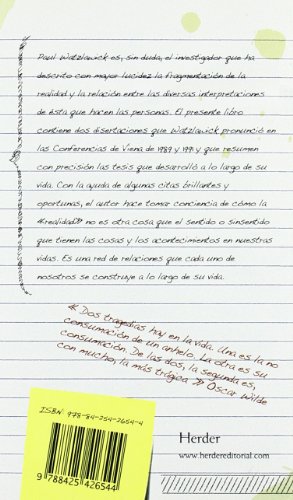 Paul Watzlawick es, sin duda, el investigador que ha
descrito con mayor lucidez la fragmentación de la
realidad y la relación entre las diversas interpretaciones
de ésta que hacen las personas. El presente libro
contiene dos disertaciones que Watzlawick pronunció en
las Conferencias de Viena de 1989 y 1991 y que resumen
con precisión las tesis que desarrolló a lo largo de su
vida. Con la ayuda de algunas citas brillantes y
oportunas, el autor hace tomar conciencia de cómo la
«realidad» no es otra cosa que el sentido o sinsentido
que tienen las cosas y los acontecimientos en nuestras
vidas. Es una red de relaciones que cada uno de
nosotros se construye a lo largo de su vida.
« Dos tragedias hay en la vida. Una es la no
consumación de un anhelo. La otra es su
consumación. De las dos, la segunda es,
con mucho, la más trágica » Oscar Wilde
ISBN 978-84-254-2654-4
9 788425 426544
Herder
www.herdereditorial.com